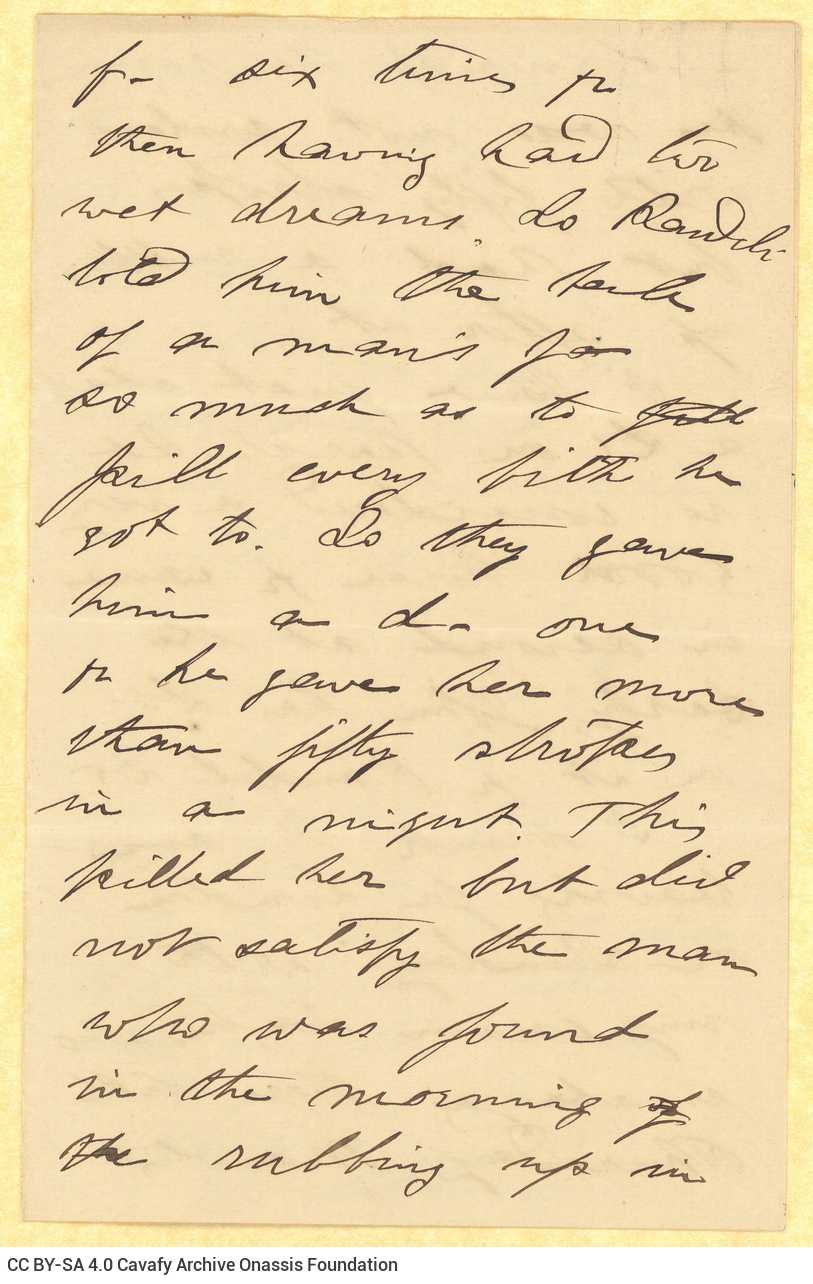 f– six times &
then having had two
wet dreams. So Randili
told him the tale
of a man's f–
so much as to
kill every bitch he
got to. So they gave
him a d– one
& he gave her more
than fifty strokes
in a night. This
killed her but did
not satisfy the man
who was found
in the morning of
the rubbing up in
CC BY-SA 4.0 Cavafy Archive Onassis Foundation